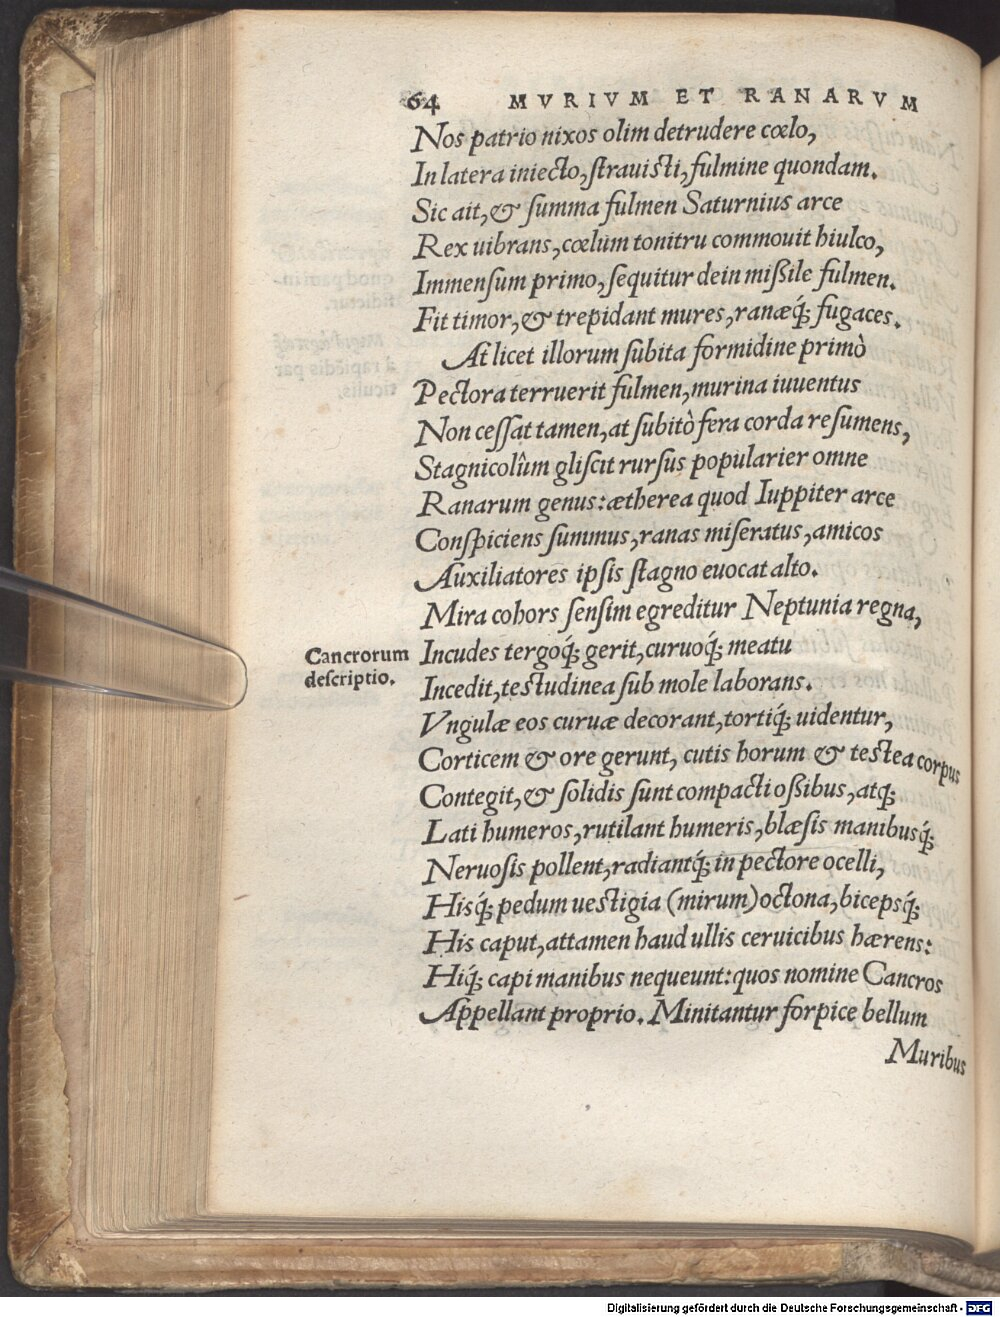 64 MVRIVM ET RANARVM
Nos patrio nixos olim detrudere cœlo,
In latera iniecto, strauisti, fulmine quondam.
Sic ait, & summa fulmen Saturnius arce
Rex uibrans, cœlum tonitru commouit hiulco,
Immensum primo, sequitur dein mißile fulmen.
Fit timor, & trepidant mures, ranæq́; fugaces.
At licet illorum subita formidine primò
Pectora terruerit fulmen, murina iuuentus
Non cessat tamen, at subitò fera corda resumens,
Stagnicolûm gliscit rursus popularier omne
Ranarum genus: ætherea quod Iuppiter arce
Conspiciens summus, ranas miseratus, amicos
Auxiliatores ipsis stagno euocat alto.
Mira cohors sensim egreditur Neptunia regna,
Cancrorum descriptio.
Incudes tergoq́; gerit, curuoq́; meatu
Incedit, testudinea sub mole laborans.
Vngulæ eos curuæ decorant, tortiq́; uidentur,
Corticem & ore gerunt, cutis horum & testea corpus
Contegit, & solidis sunt compacti oßibus, atq;
Lati humeros, rutilant humeris, blæsis manibusq́;
Neruosis pollent, radiantq́; in pectore ocelli,
Hisq́; pedum uestigia (mirum) octona, bicepsq́;
His caput, attamen haud ullis ceruicibus hærens:
Hiq́; capi manibus nequeunt: quos nomine Cancros
Appellant proprio. Minitantur forpice bellum
Muribus
Digitalisierung gefördert durch die Deutsche Forschungsgemeinschaft - DFG